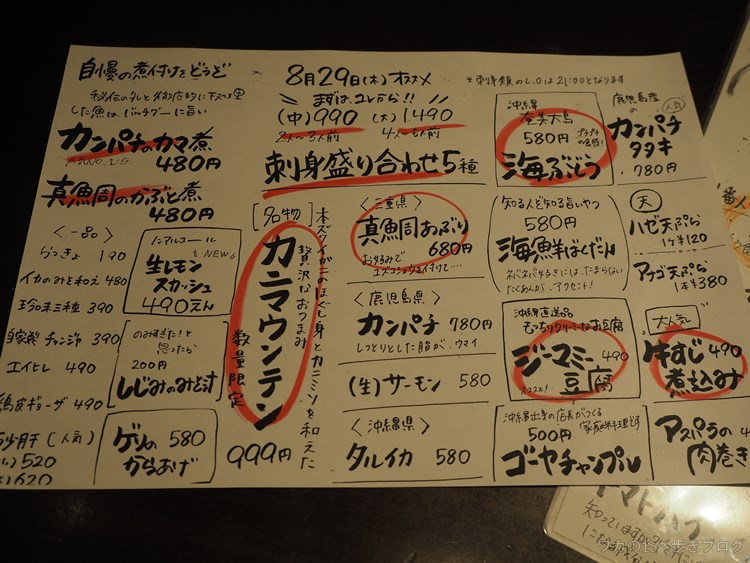 自慢の煮付けをどうぞ
した魚は、バッチグーに旨い
カンパチのカマ煮
480円
真鯛のかぶと煮
480円
8月29日(木)オススメ
※刺身類のL.Oは21:00となります
まずは、コレから!!
(中)990 (大)1,490
2人〜3人前 4人〜5人前
刺身盛り合わせ5種
沖縄県
奄美大島
580円
プチプチの食感!
海ぶどう
鹿児島産の
人気
カンパチ
タタキ
780円
<一品>
らっきょ 190
イカのみと和え 480
珍味三種 390
自家製チャンジャ 390
エイヒレ 490
鶏皮ギョーザ 490
砂肝(人気)
520
620
ノンアルコール
NEW
生レモン
スカッシュ
490えん
のみすぎた!と
思ったら
200円
しじみのみそ汁
ゲソの 580
からあげ
[名物]
本ズワイガニのほぐし身とカニミソを和えた
贅沢なおつまみ
カニマウンテン
数量限定
999円
<三重県>
真鯛あぶり
680円
お好みで
<鹿児島県>
カンパチ 780円
しっとりとした脂が、ウマイ
(生)サーモン 580
<沖縄県>
タルイカ 580
知る人ぞ知る旨いやつ
580円
海鮮ばくだん
ネバネバ好きには、たまらない
たくあんが、アクセント!
沖縄直送品
もっちりクリーミーなお豆腐
ジーマミー 490
豆腐
オススメ!
沖縄出身の店長がつくる
家庭料理です
500円
ゴーヤチャンプル
天
ハゼ天ぷら
1ケ¥120
アナゴ天ぷら
1本¥380
大人気
牛すじ 490
煮込み
アスパラの
肉巻き
トマトハイ
知っていますか
リカの食べ歩きブログ